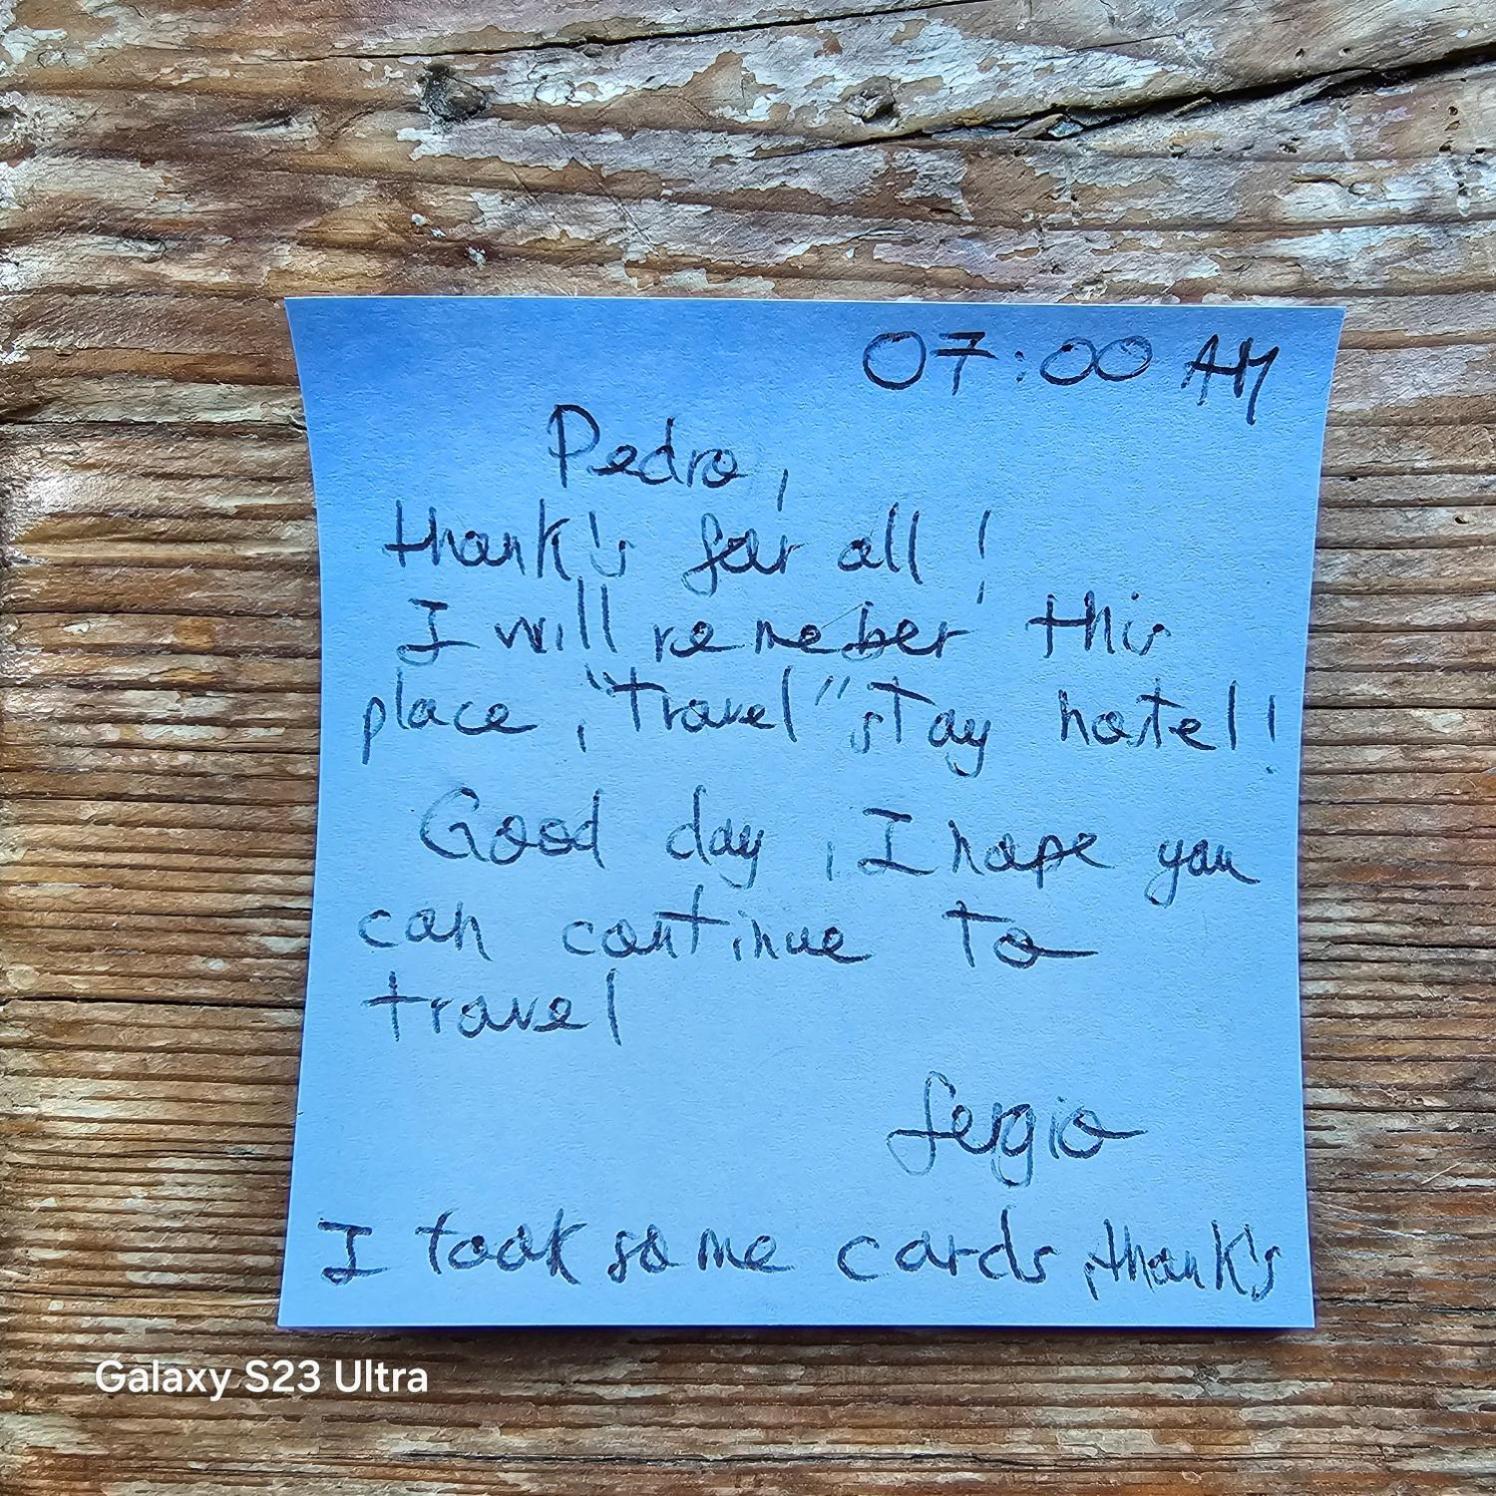 07:00 AM
Pedro,
thank's for all!
I will remeber this
place, "Travel" stay hostel!
Good day, I hope you
can continue to
travel
Sergio
I took some cards, thank's
Galaxy S23 Ultra